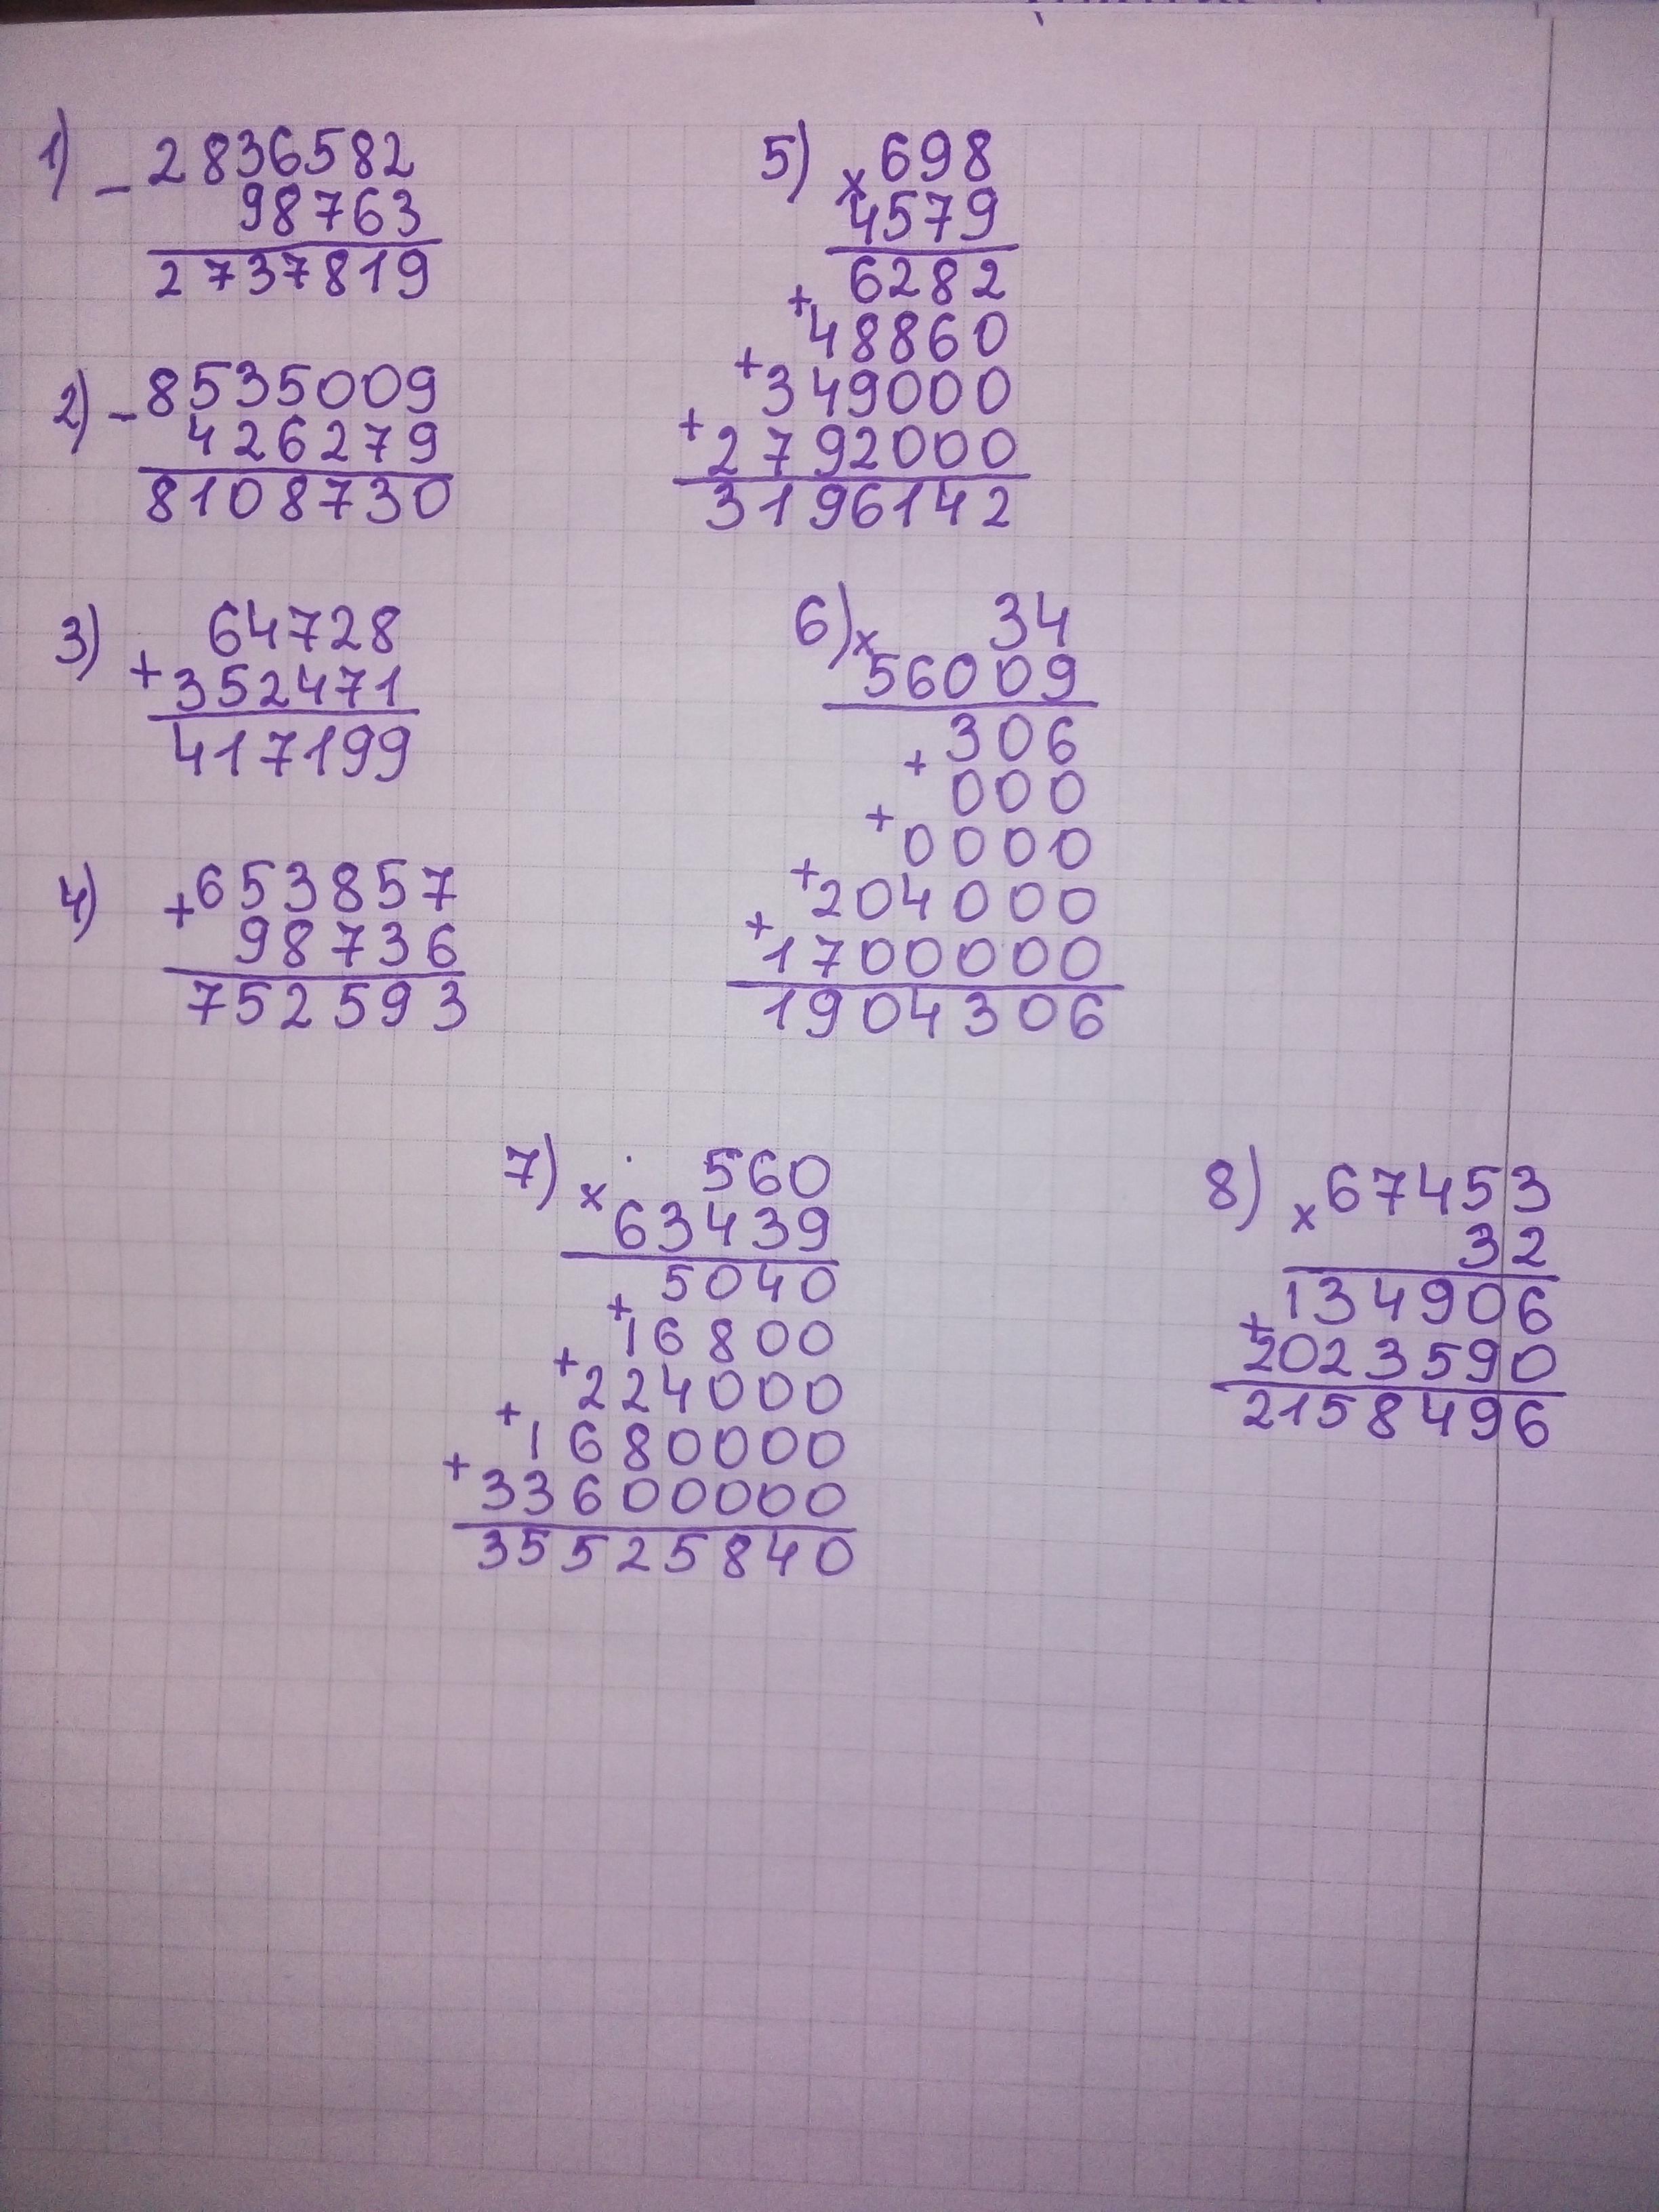 1) - 2836582
98763
2737819
2) - 8535009
426279
8108730
3) 64728
+ 352471
417199
4) + 653857
98736
752593
5) x 698
4579
6282
+ 48860
+ 349000
+ 2792000
3196142
6) x 34
56009
306
+ 000
+ 0000
+ 204000
+ 1700000
1904306
7) x 560
63439
5040
+ 16800
+ 224000
+ 1680000
+ 33600000
35525840
8) x 67453
32
134906
+ 2023590
2158496